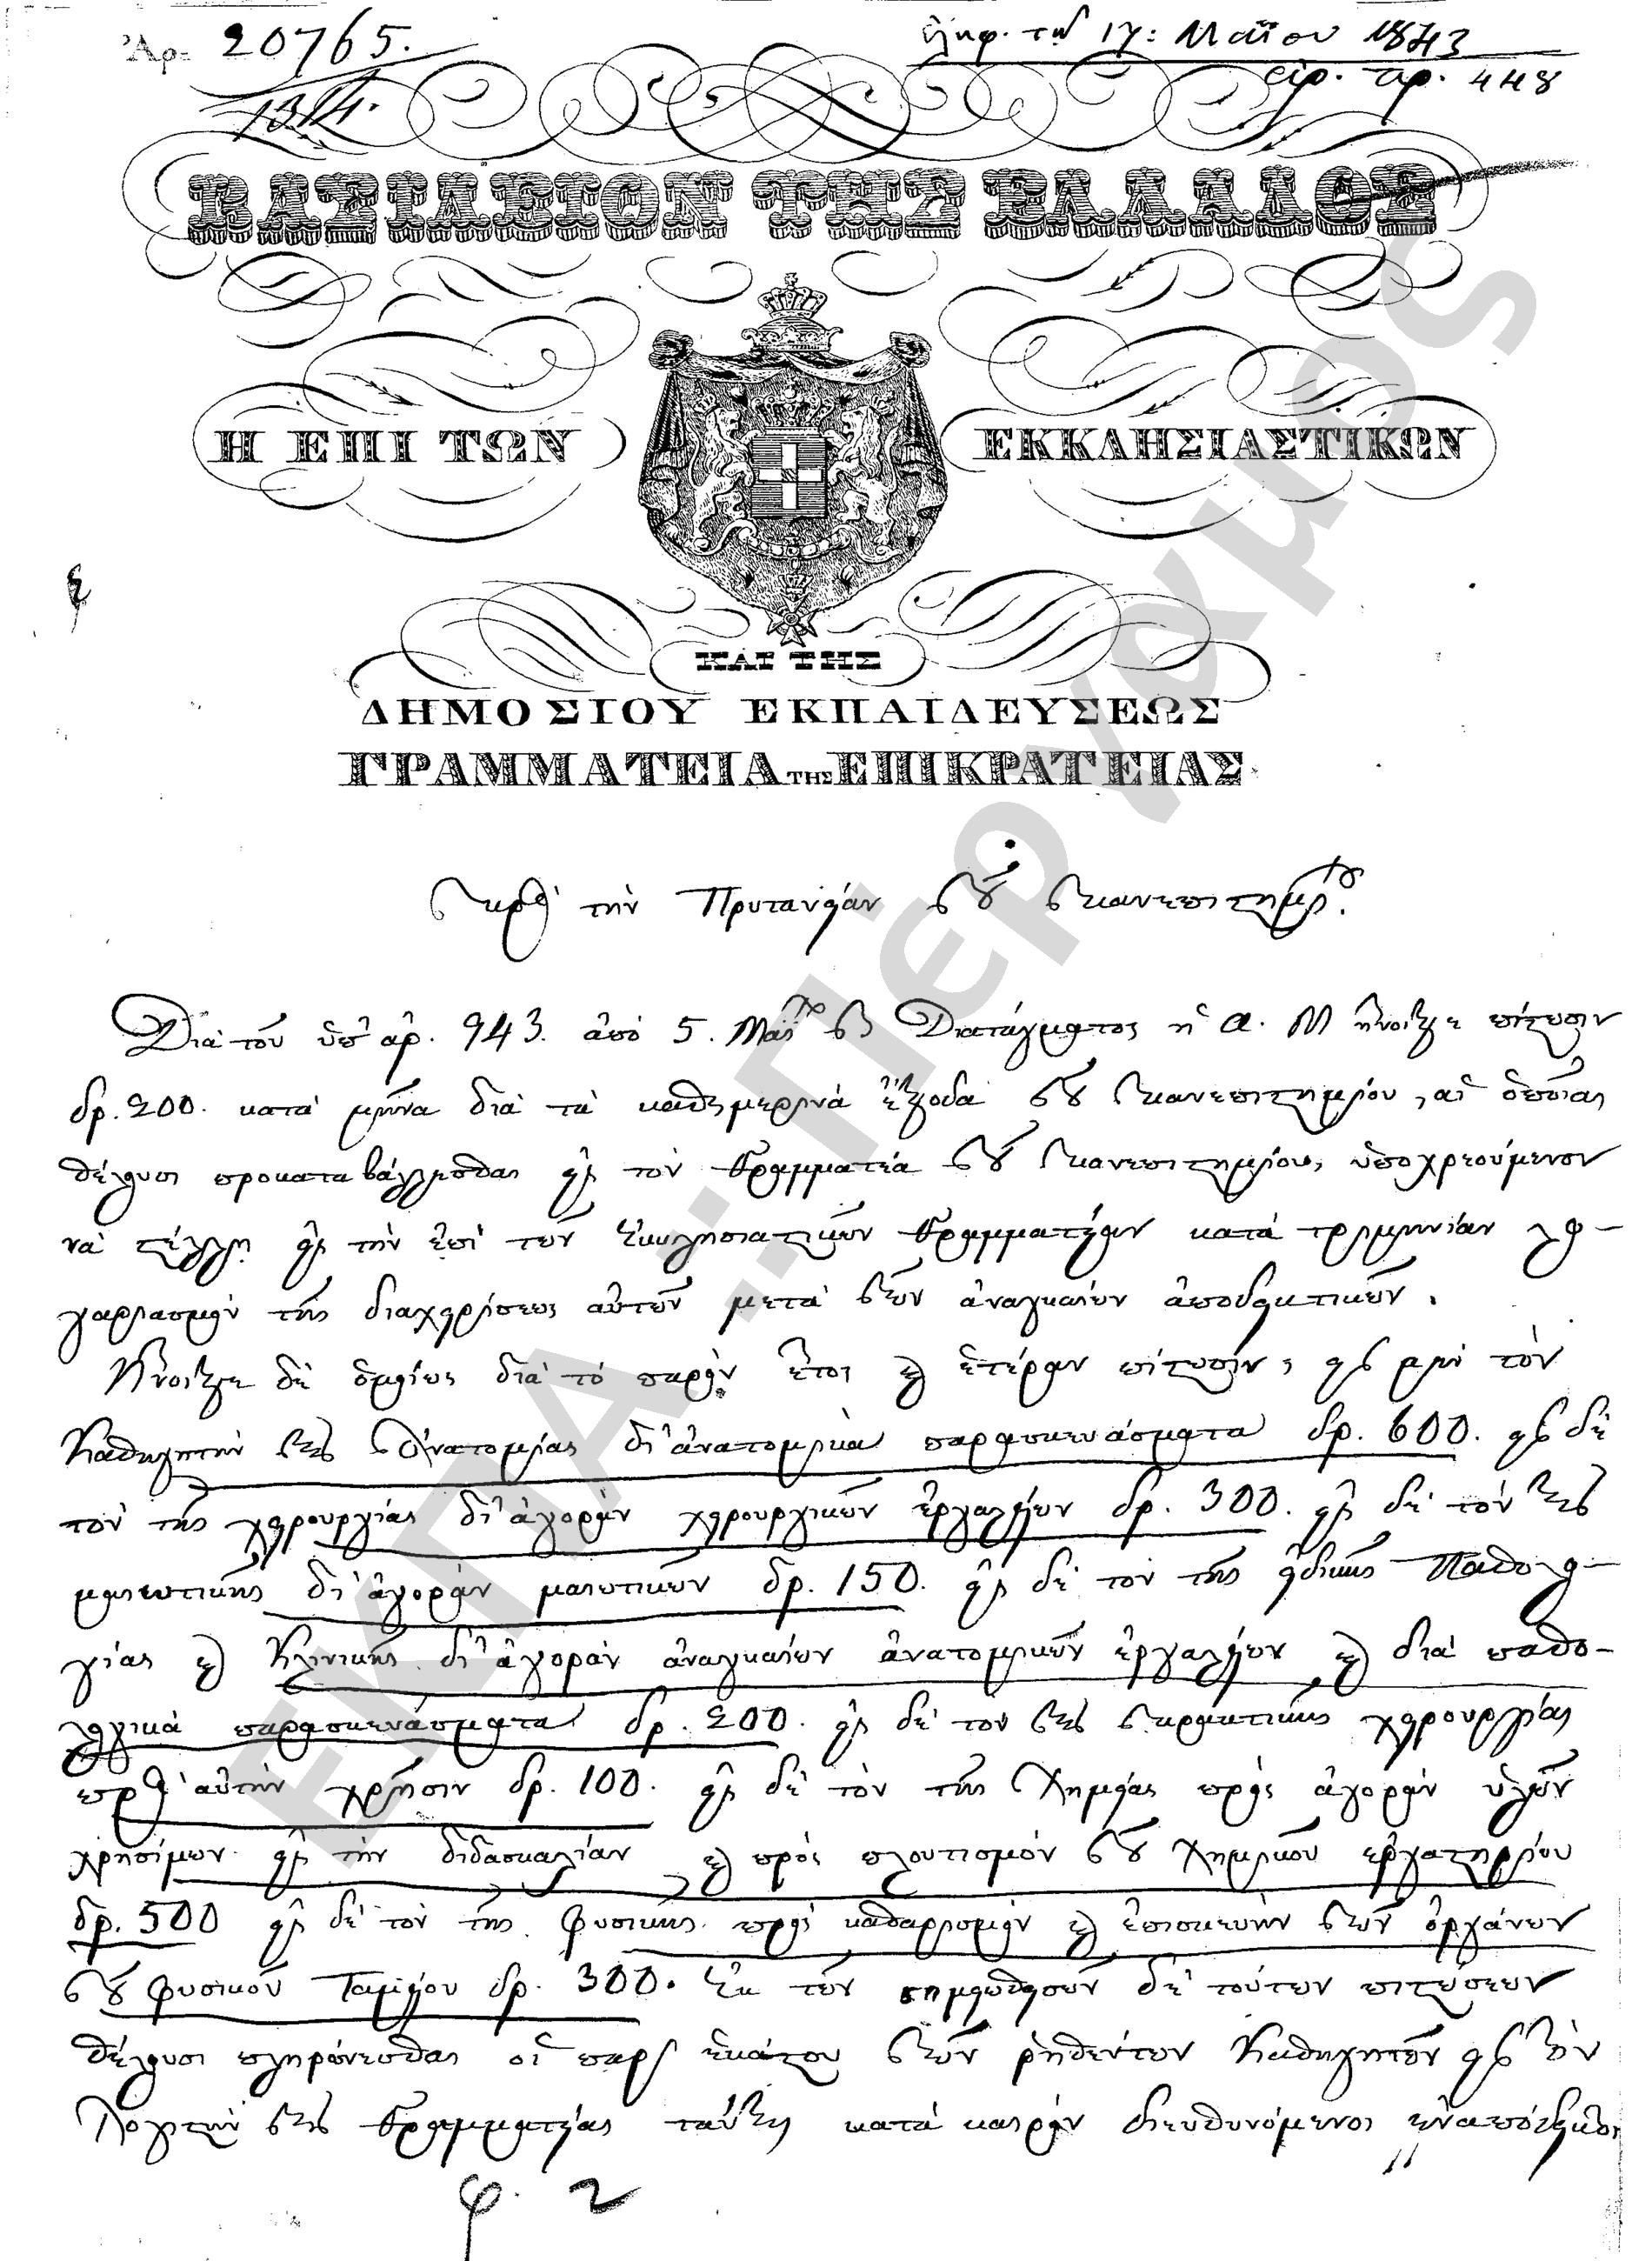 Ἀρ. 20765.
ἐλήφ. τῇ 17: Μαΐου 1843
ἀρ. 448
13/4.
ΒΑΣΙΛΕΙΟΝ ΤΗΣ ΕΛΛΑΔΟΣ
Η ΕΠΙ ΤΩΝ ΕΚΚΛΗΣΙΑΣΤΙΚΩΝ
ΚΑΙ ΤΗΣ
ΔΗΜΟΣΙΟΥ ΕΚΠΑΙΔΕΥΣΕΩΣ
ΓΡΑΜΜΑΤΕΙΑ ΤΗΣ ΕΠΙΚΡΑΤΕΙΑΣ
Πρὸς τὴν Πρυτανείαν τοῦ Πανεπιστημίου.
Διὰ τοῦ ὑπ' ἀρ. 943. ἀπὸ 5. Μαΐου Διατάγματος ἡ Α. Μ ἤνοιξε πίστωσιν
δρ. 200. κατὰ μῆνα διὰ τὰ καθημερινὰ ἔξοδα τοῦ Πανεπιστημίου, αἱ ὁποῖαι
θέλουσι προκαταβάλλεσθαι εἰς τὸν Γραμματέα τοῦ Πανεπιστημίου, ὑποχρεούμενον
νὰ στέλλῃ εἰς τὴν ἐπὶ τῶν Ἐκκλησιαστικῶν Γραμματείαν κατὰ τριμηνίαν λο-
γαριασμὸν τῆς διαχειρίσεως αὐτῶν μετὰ τῶν ἀναγκαίων ἀποδεικτικῶν.
Ἤνοιξε δὲ ὁμοίως διὰ τὸ παρὸν ἔτος καὶ ἑτέραν πίστωσιν, εἰς μὲν τὸν
Καθηγητὴν τῆς Ἀνατομίας δι' ἀνατομικὰ παρασκευάσματα δρ. 600. εἰς δὲ
τὸν τῆς χειρουργίας δι' ἀγορὰν χειρουργικῶν ἐργαλείων δρ. 300. εἰς δὲ τὸν τῆς
μαιευτικῆς δι' ἀγορὰν μαιευτικῶν δρ. 150. εἰς δὲ τὸν τῆς εἰδικῆς Παθολο-
γίας καὶ Κλινικῆς δι' ἀγορὰν ἀναγκαίων ἀνατομικῶν ἐργαλείων καὶ διὰ παθο-
λογικὰ παρασκευάσματα δρ. 200. εἰς δὲ τὸν τῆς πρακτικῆς χειρουργίας
πρὸς αὐτὴν χρῆσιν δρ. 100. εἰς δὲ τὸν τῆς Χημείας πρὸς ἀγορὰν ὑλῶν
χρησίμων εἰς τὴν διδασκαλίαν καὶ πρὸς πλουτισμὸν τοῦ χημικοῦ ἐργαστηρίου
δρ. 500 εἰς δὲ τὸν τῆς φυσικῆς πρὸς καθαρισμὸν καὶ ἐπισκευὴν τῶν ὀργάνων
τοῦ φυσικοῦ Ταμείου δρ. 300. Ἐκ τῶν σημειωθεισῶν δὲ τούτων πιστώσεων
θέλουσι πληρώνεσθαι οἱ παρ' ἑκάστου τῶν ῥηθέντων Καθηγητῶν εἰς τὸν
Λογιστὴν τῆς Γραμματείας ταύτης κατὰ καιρὸν διευθυνόμενοι ἐναπόδεικτοι
φ. 2
ΕΚΠΑ::Πέργαμος